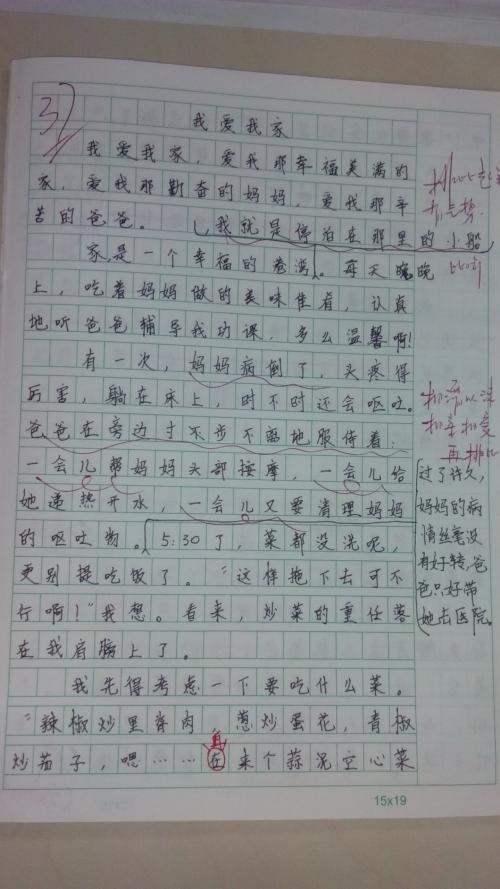 37
我爱我家
我爱我家，爱我那幸福美满的
家，爱我那勤奋的妈妈，爱我那辛
苦的爸爸。
我就是停泊在那里的小船
家，是一个幸福的港湾。每天晚晚
上，吃着妈妈做的美味佳肴，认真
地听爸爸辅导我功课，多么温馨啊！
有一次，妈妈病倒了，头疼得
厉害，躺在床上，时不时还会呕吐。
爸爸在旁边寸不步不离地服侍着：
一会儿帮妈妈头部按摩，一会儿给
她递热开水，一会儿又要清理妈妈
的呕吐物。5:30了，菜都没洗呢，
更别提吃饭了。“这样拖下去可不
行啊！”我想。看来，炒菜的重任落
在我肩膀上了。
我先得考虑一下要吃什么菜。
“辣椒炒里脊肉，葱炒蛋花，青椒
炒茄子，嗯……在来个蒜泥空心菜
再
比喻
再排比
过了许久，
妈妈的病
情丝毫没
有好转，爸
爸只好带
她去医院。
15x19